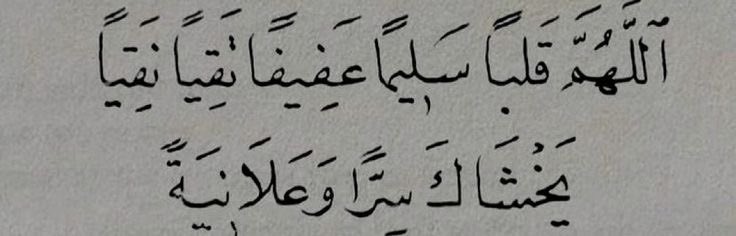 ٱللَّهُمَّ قَلبًا سَلِيمًا عَفِيفًا تَقِيًا نَقِيًا
يَخْشَاكَ سِرًّا وَعَلَانِيَةً